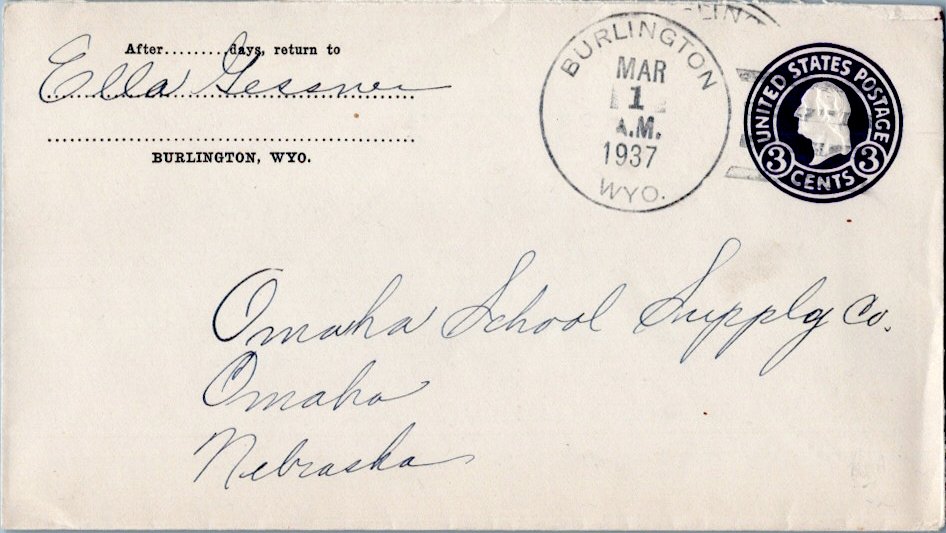 After........days, return to
Ella Gessner
BURLINGTON, WYO.
BURLINGTON
MAR
1
A.M.
1937
WYO.
LING
UNITED STATES POSTAGE
3 CENTS 3
Omaha School Supply Co.
Omaha
Nebraska